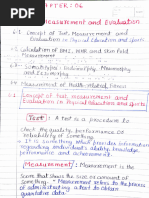 CHAPTER : 06
Measurement and Evaluation
6.1 Concept of Test, Measurement and
Evaluation in Physical Education and Sports
Calculation of BMI, WHR and Skin fold
measurement
Somatotypes : Endomorphy, Mesomorphy
and Ectomorphy
Measurement of Health related Fitness
6.1 Concept of Test, measurement and
Evaluation in Physical Education and Sports.
Test : A test is a procedure to
check the quality, performance, or
of something.
It is something what provides information
regarding individual's ability knowledge
performance and achievement.
Measurement : Measurement is the
Score that shows the size or amount of
something. Measurement refers to the process
of administrating a test to obtain
quantitative data.